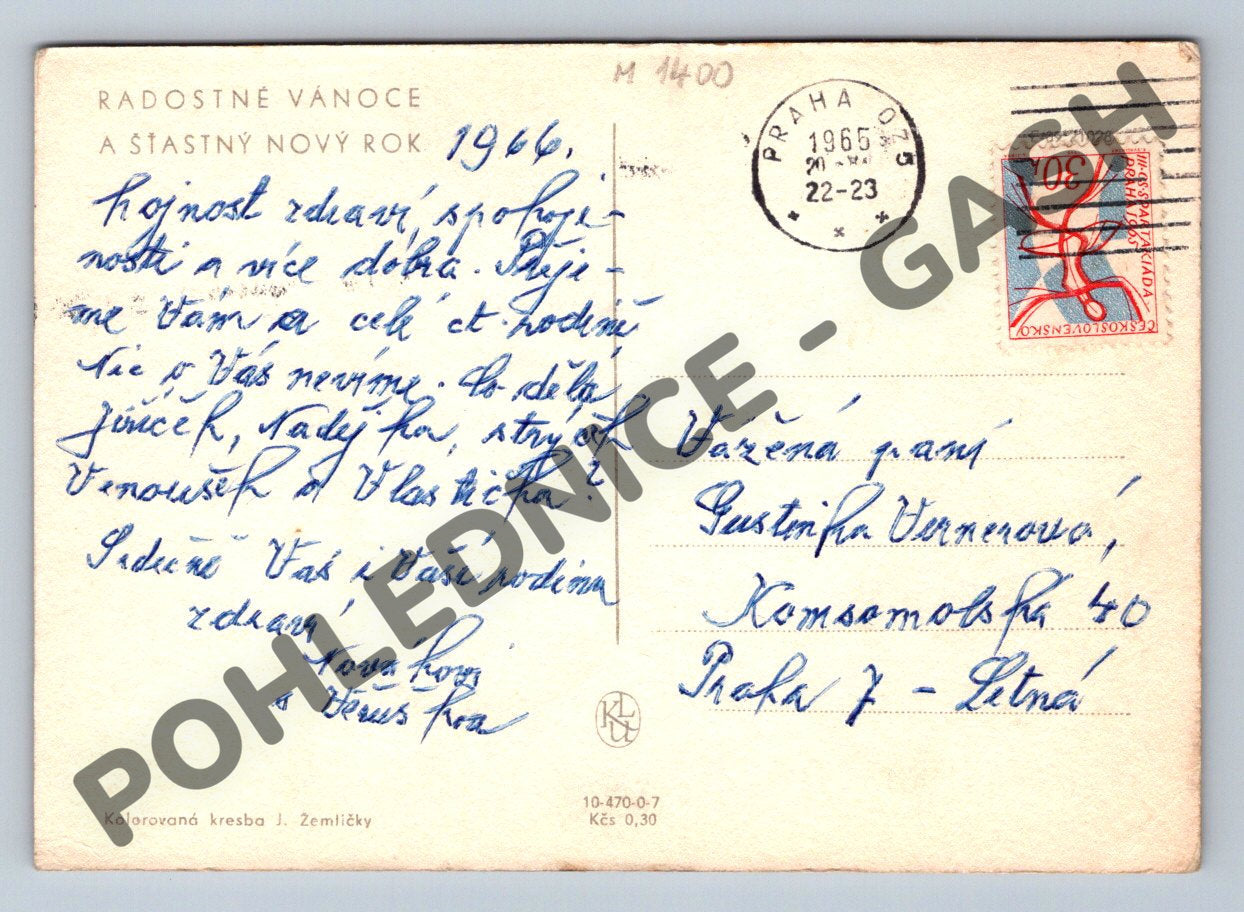 M 1400
RADOSTNÉ VÁNOCE
A ŠŤASTNÝ NOVÝ ROK 1966.
hojnost zdraví, spokoje-
nosti a více dobra. Přeje-
me Vám a celé ct. rodině
Nic o Vás nevíme. Co dělá
Jiříček, Nadějka, strýček
Venoušek a Vlastička?
Srdečně Vás i Vaši rodinu
zdraví
Novákovi
a Věruška
PRAHA 075
1965
20
22-23
30h
III. CS SPARTAKIÁDA
PRAHA 1965
ČESKOSLOVENSKO
Vážená paní
Gustinka Vernerová,
Komsomolská 40
Praha 7 - Letná
KLU
10-470-0-7
Kčs 0,30
Kolorovaná kresba J. Žemličky
POHLEDNICE - GASH